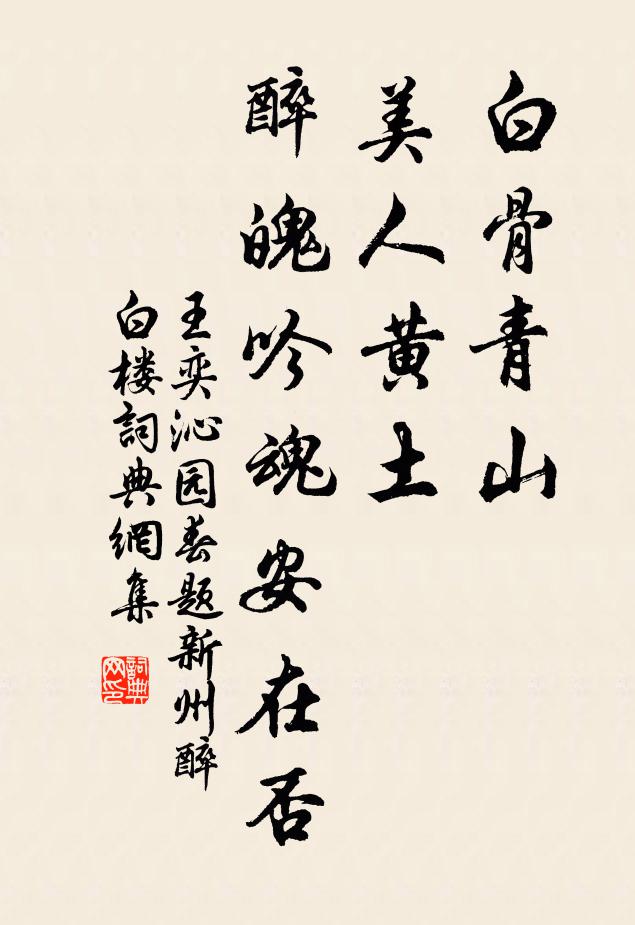 白骨青山
美人黄土
醉魄吟魂安在否
王奕沁园春题新州醉
白楼詞典網集
詞典网印